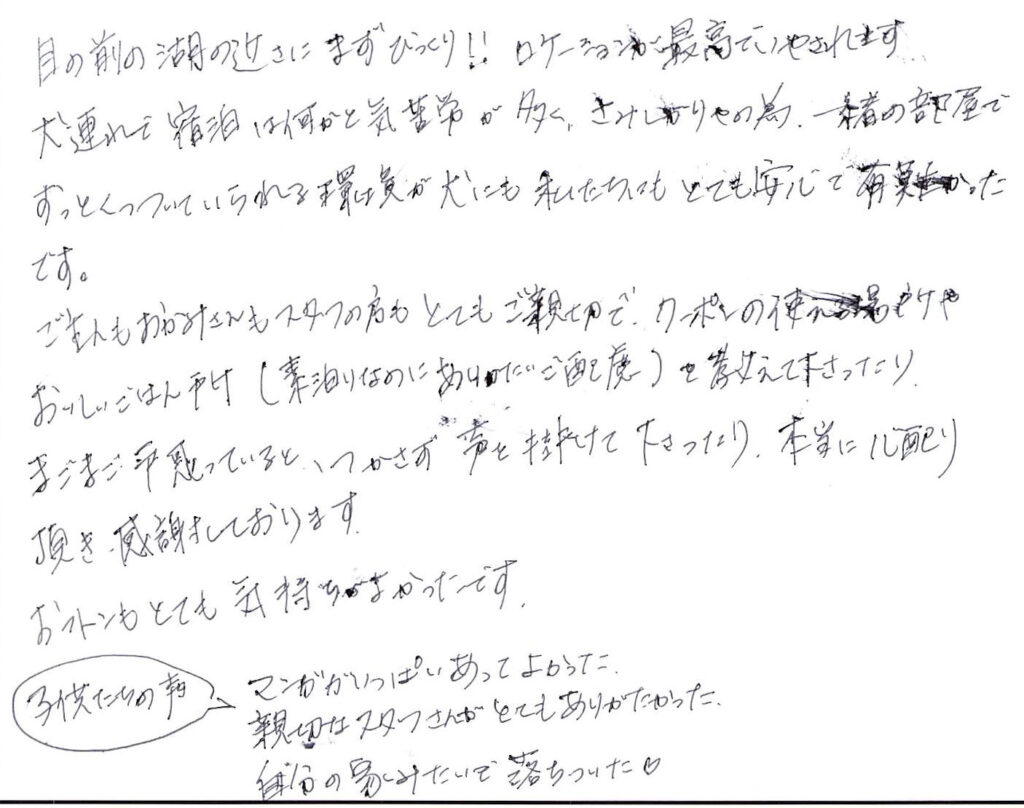 目の前の湖の近さにまずびっくり!! ロケーションが最高でいやされます
犬連れで宿泊は何かと気苦労が多く、さみしがりやの為、一緒の部屋で
ずっとくっついていられる環境が犬にも私たちにもとても安心で有難かった
です。
ご主人もおかみさんもスタッフの方もとてもご親切で、クーポンの使える場所や
おいしいごはん所(素泊りなのにありがたいご配慮)を教えて下さったり、
まごまご戸惑っていると、いつかさず声を掛けて下さったり、本当に心配り
頂き、感謝しております。
おフトンもとても気持ちがよかったです。
子供たちの声
マンガがいっぱいあってよかった。
親切なスタッフさんがとてもありがたかった。
自分の家みたいで落ちついた♡